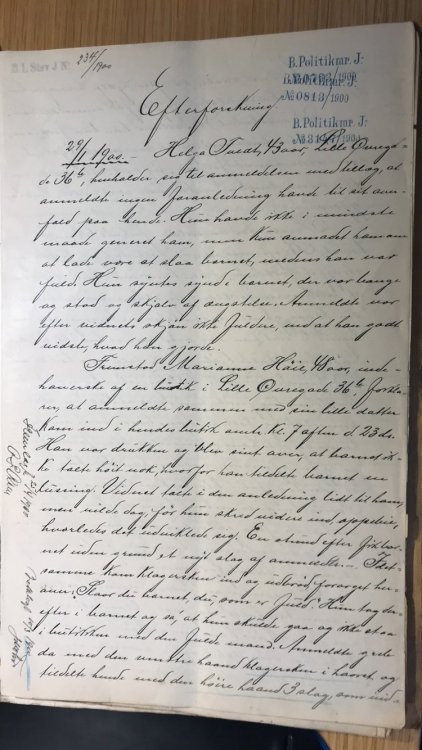 B.I. Stev J. №: 234/1900
B. Politikmr. J:
B. Politikmr. J:
№ 0813/1900
B. Politikmr. J:
Efterforskning
29/1 1900. Helga Tvedt, 43 aar, Lille Övrega-
de 36b, henholder sig til anmeldelsen med tillæg, at
anmeldte ingen foranledning havde til sit over-
fald paa hende. Hun havde ikke i mindste
maade generet ham, men kun anmodet ham om
at lade være at slaa barnet, medens han var
fuld. Hun syntes synd i barnet, der var bange
og stod og skjalv af ængstelse. Anmeldte var
efter vidnets skjön ikke fuldere, end at han godt
vidste, hvad han gjorde.
Fremstod Marianne 48 aar, inde-
haverske af en butik i Lille Övregade 36b, forkla-
rer, at anmeldte sammen med sin lille datter
kom ind i hendes butik omtr. kl. 7 aften d 23 ds.
Han var drukken og blev sint over, at barnet ik-
ke talte höit nok, hvorfor han tildelte barnet en
lusing. Vidnet talte i den anledning lidt til ham,
men vilde dog, för hun skred videre ind, oppebie,
hvorledes det udviklede sig. En stund efter fik bar-
net uden grund et nyt slag af anmeldte. I det-
samme kom klagersken ind og udbröd forarget her-
over: Slaar du barnet dit, som er fuld. Hun tog der-
efter i barnet og sa', at hun skulde gaa og ikke staa
i butikken med den fulde mand. Anmeldte greb
da med den venstre haand klagersken i haaret og
tildelte hende med den höire haand 3 slag, som ind-